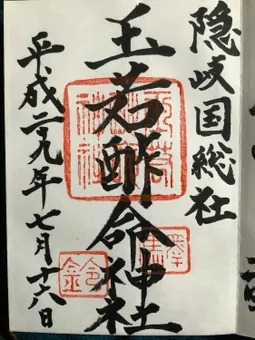 隠岐国総社
玉若酢命神社
平成二九年七月十六日